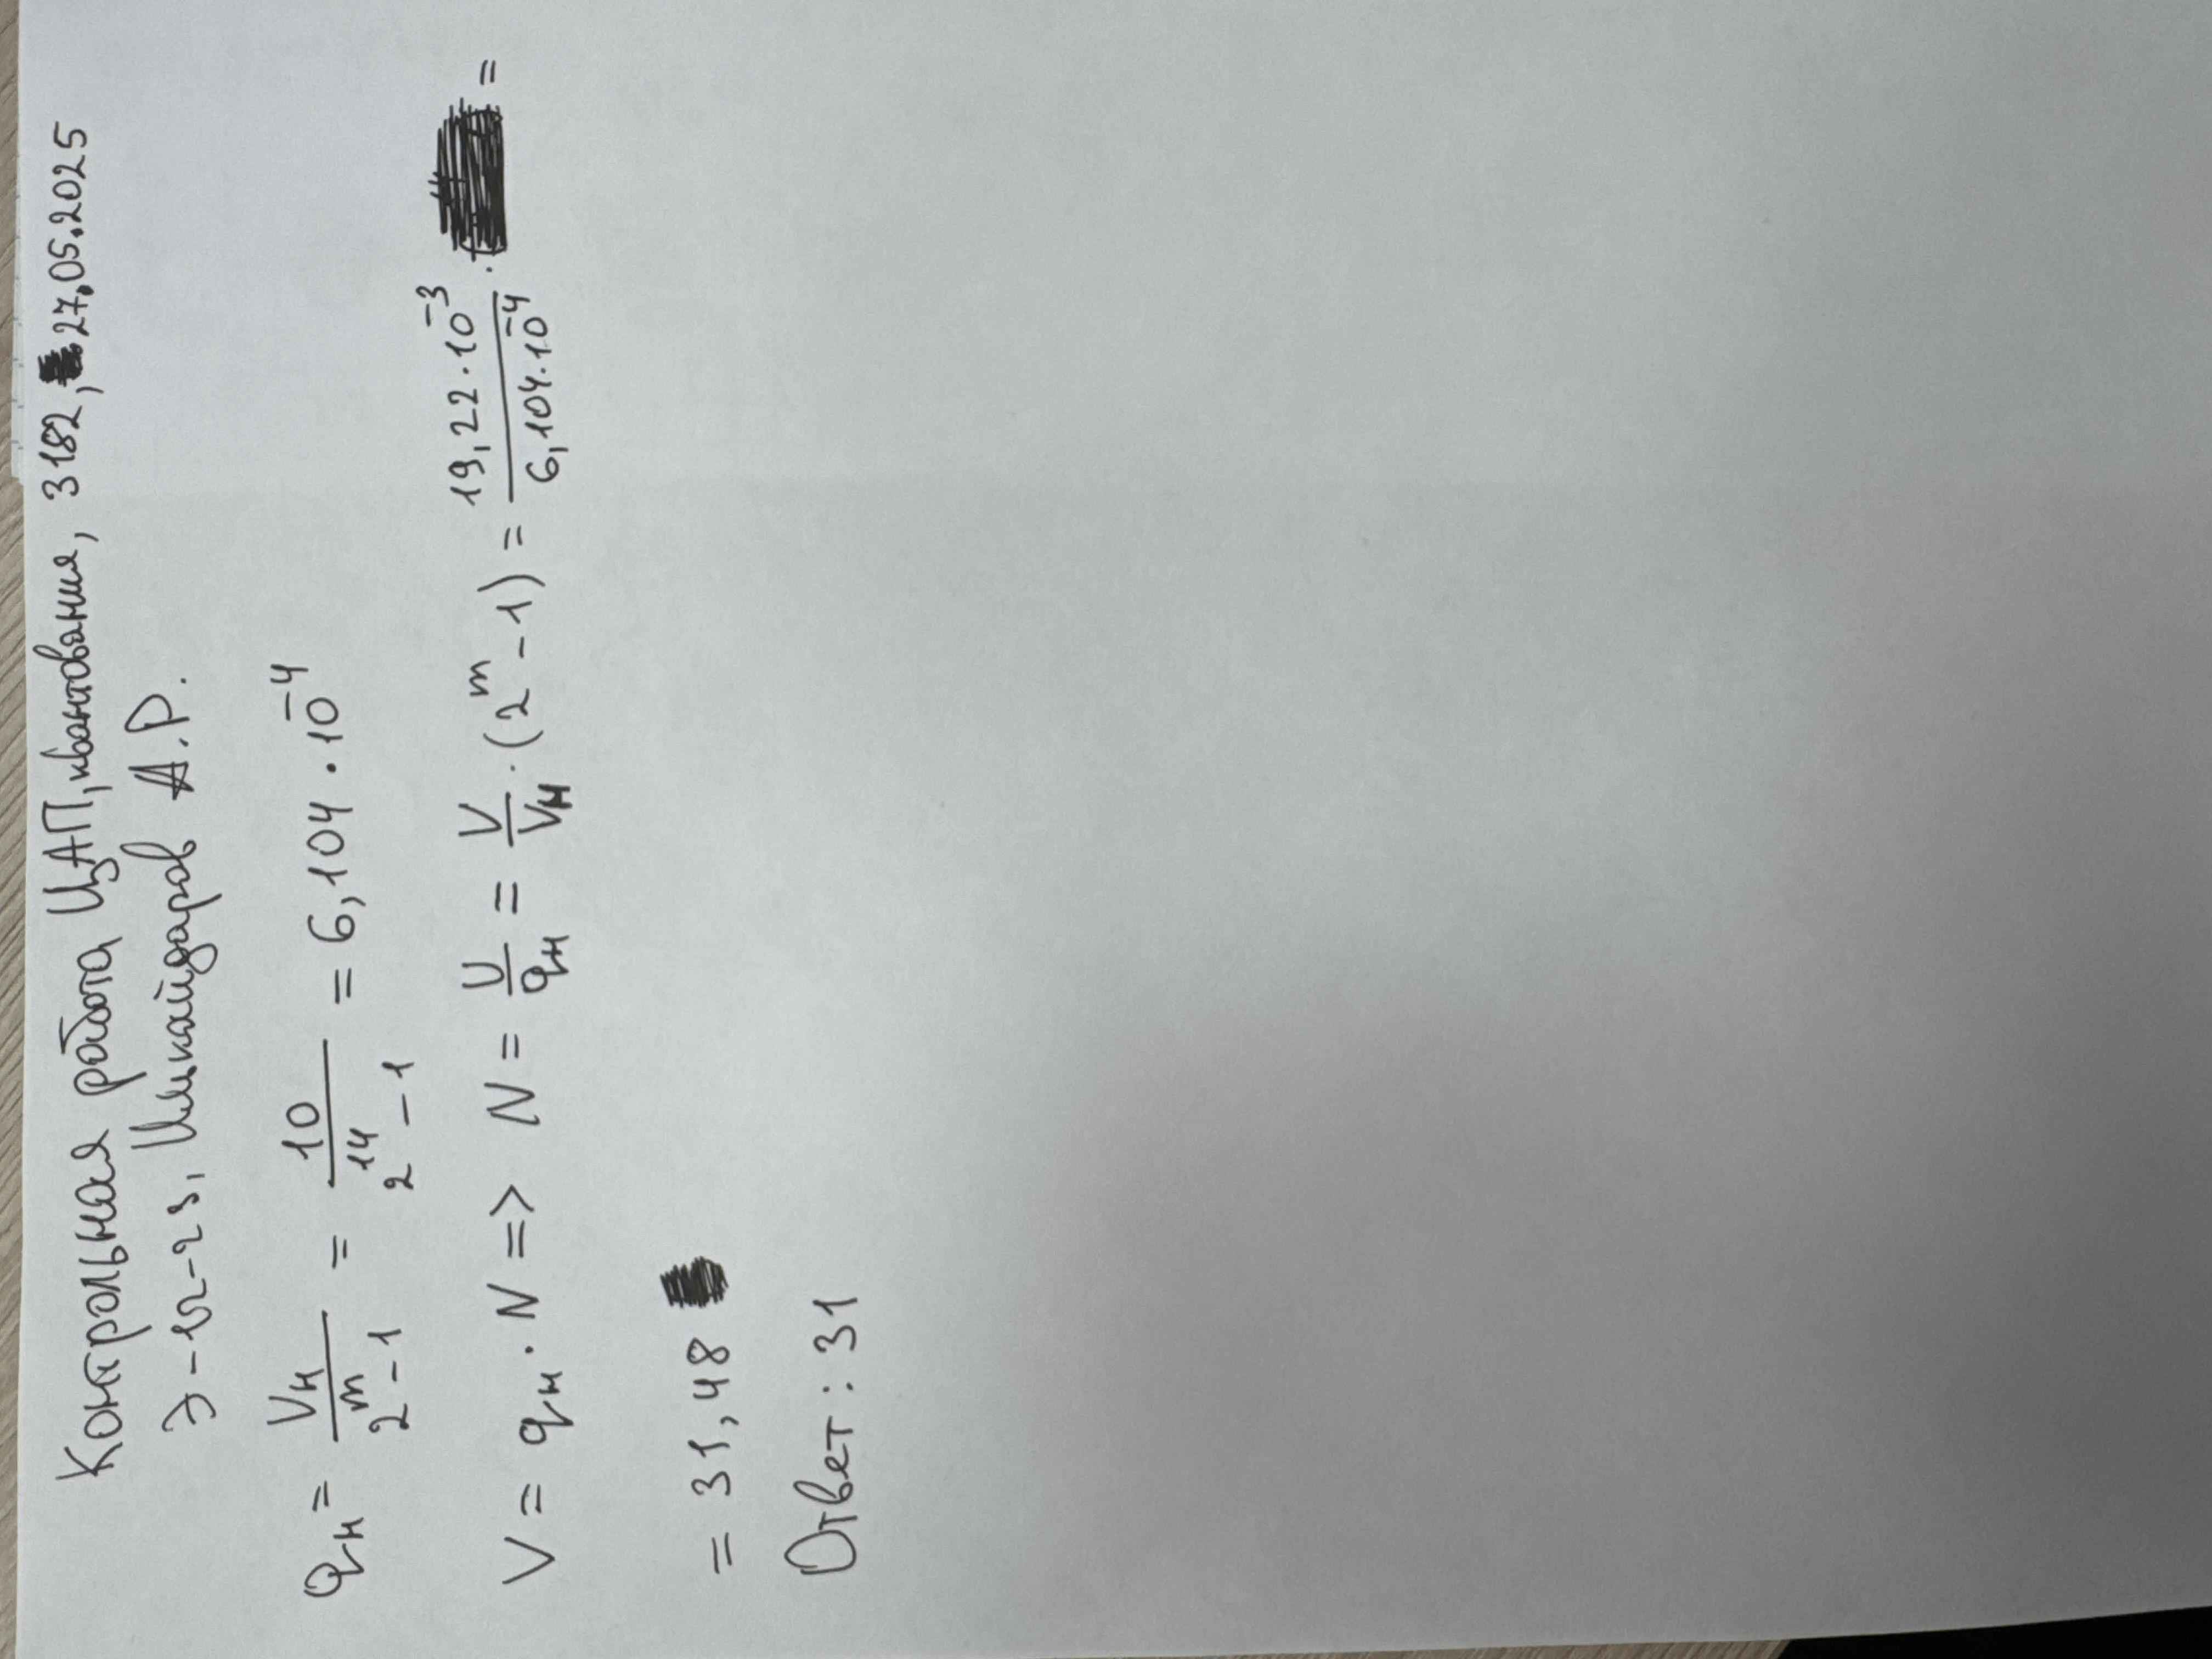 Контрольная работа ЦАП, квантования, 3182, 27.05.2025
Э-12-23, Шикайдаров А.Р.
qн = Vн / (2^m - 1) = 10 / (2^14 - 1) = 6,104 · 10^-4
V = qн · N => N = U / qн = V / Vн · (2^m - 1) = 19,22 · 10^-3 / 6,104 · 10^-4 · =
= 31,48
Ответ: 31